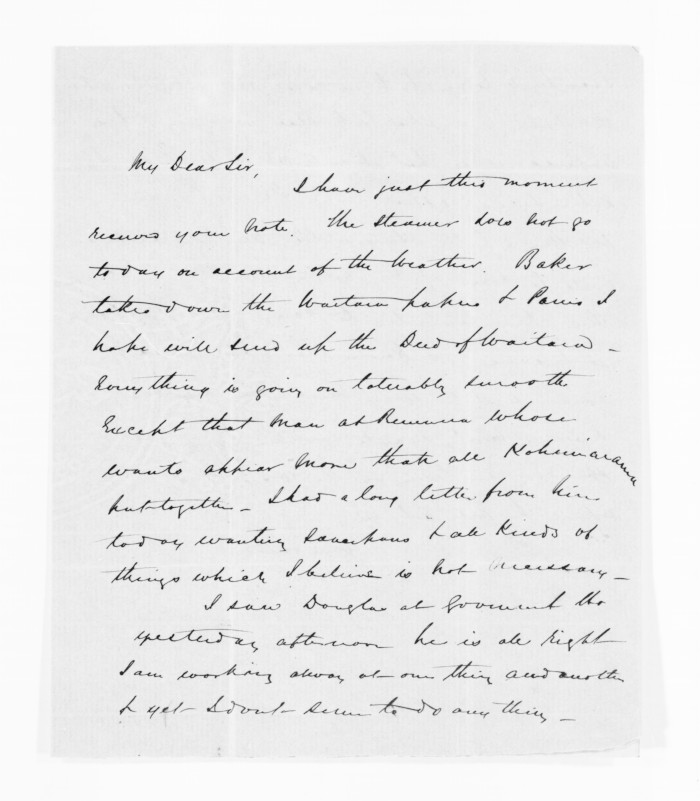 My Dear Sir,
I have just this moment
received your note. The Steamer does not go
today on account of the Weather. Baker
takes down the Waitara papers & Parris I
hope will send up the Deed of Waitara -
Everything is going on tolerably smooth
Except that Man at Remuera whose
wants appear more than all Kohimarama
put together - I had a long letter from him
today wanting & all kinds of
things which I believe is not necessary -
I saw Douglas at Goverment Ho
yesterday afternoon he is all right
I am working away at one thing and another
& yet I dont seem to do anything -